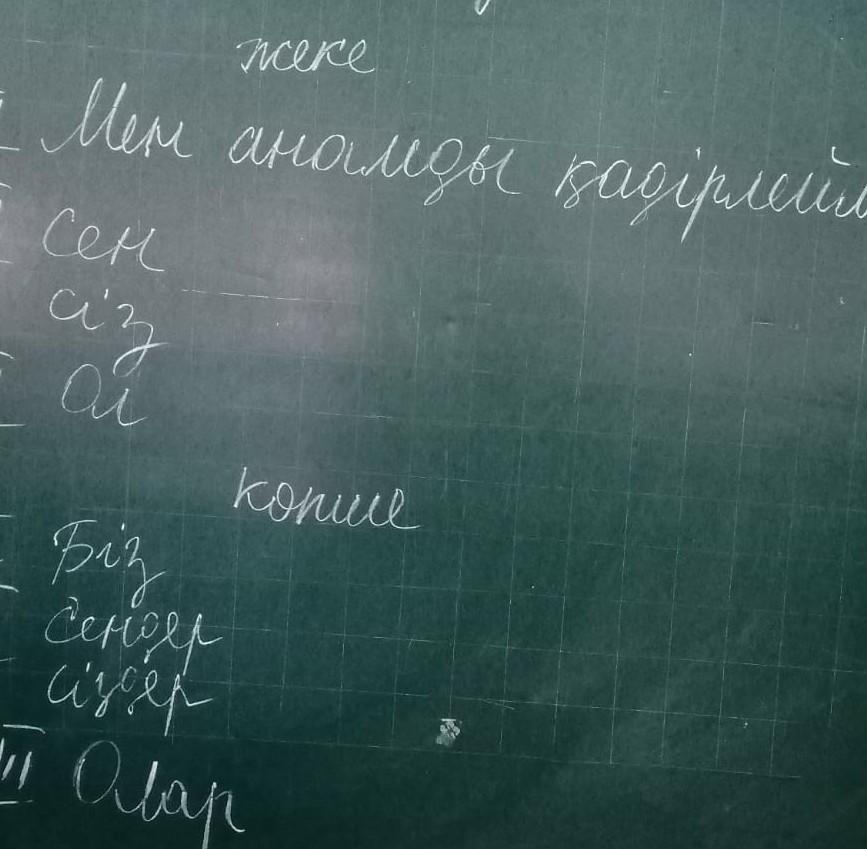 жеке
Мен анамды қадірлейм
Сен
сіз
Ол
көпше
Біз
Сендер
сіздер
III Олар